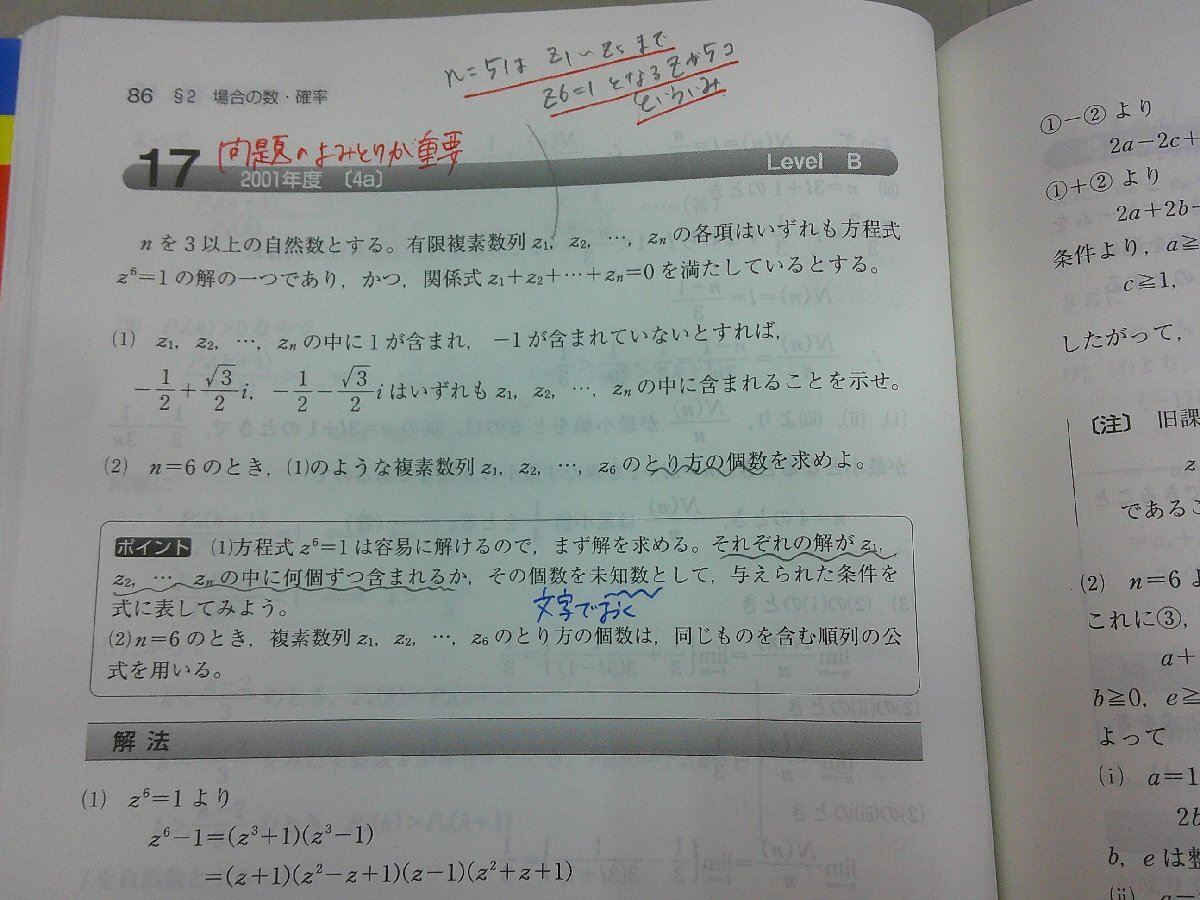 n=5は z1〜z5まで
z6=1 となる zが5コ
という意み
86 §2 場合の数・確率
問題のよみとりが重要
17 2001年度 〔4a〕 Level B
n を3以上の自然数とする。有限複素数列 z₁, z₂, …, zₙ の各項はいずれも方程式
z⁶=1 の解の一つであり，かつ，関係式 z₁+z₂+…+zₙ=0 を満たしているとする。
(1) z₁, z₂, …, zₙ の中に1が含まれ，-1が含まれていないとすれば，
-1/2+√3/2 i, -1/2-√3/2 i はいずれも z₁, z₂, …, zₙ の中に含まれることを示せ。
(2) n=6 のとき，(1)のような複素数列 z₁, z₂, …, z₆ のとり方の個数を求めよ。
ポイント (1)方程式 z⁶=1 は容易に解けるので，まず解を求める。それぞれの解が z₁,
z₂, …, zₙ の中に何個ずつ含まれるか，その個数を未知数として，与えられた条件を
式に表してみよう。
文字でおく
(2) n=6 のとき，複素数列 z₁, z₂, …, z₆ のとり方の個数は，同じものを含む順列の公
式を用いる。
解法
(1) z⁶=1 より
z⁶-1=(z³+1)(z³-1)
=(z+1)(z²-z+1)(z-1)(z²+z+1)
①-② より
2a-2c+
①+② より
2a+2b-
条件より，a≧
c≧1,
したがって，
〔注〕 旧課
z
であるこ
(2) n=6 よ
これに③，
a+
b≧0, e≧
よって
(i) a=1
2b
b, e は整
(ii) a=